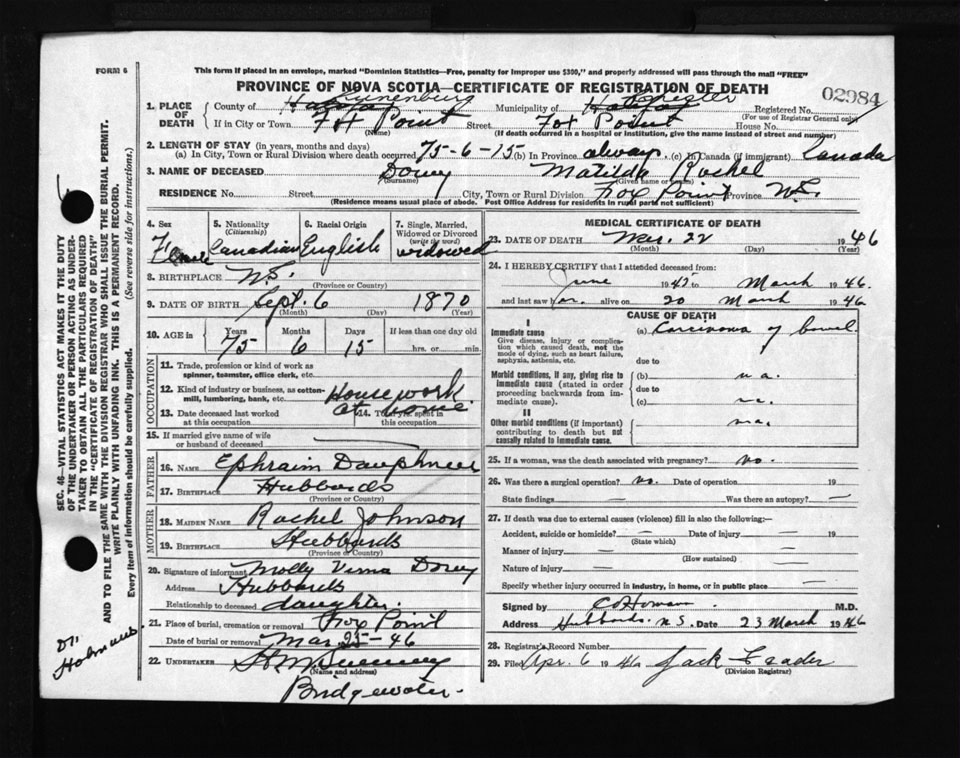 FORM 6
This form if placed in an envelope, marked "Dominion Statistics—Free, penalty for improper use $300," and properly addressed will pass through the mail "FREE"
PROVINCE OF NOVA SCOTIA—CERTIFICATE OF REGISTRATION OF DEATH
02984
1. PLACE OF DEATH County of Halifax Lunenburg Municipality of Halifax Chester Registered No.
(For use of Registrar General only)
If in City or Town Fox Point Street Fox Point House No.
(Name) (If death occurred in a hospital or institution, give the name instead of street and number)
2. LENGTH OF STAY (in years, months and days)
(a) In City, Town or Rural Division where death occurred 75-6-15 (b) In Province always. (c) In Canada (if immigrant) Canada
3. NAME OF DECEASED Dorey Matilda Rachel
(Surname) (Given name or names)
RESIDENCE No. Street City, Town or Rural Division Fox Point Province N.S.
(Residence means usual place of abode. Post Office Address for residents in rural parts not sufficient)
4. Sex Female
5. Nationality (Citizenship) Canadian
6. Racial Origin English
7. Single, Married, Widowed or Divorced (write the word) widowed
8. BIRTHPLACE N.S.
(Province or Country)
9. DATE OF BIRTH Sept. 6 1870
(Month) (Day) (Year)
10. AGE in Years Months Days If less than one day old
75 6 15 hrs. or min.
OCCUPATION
11. Trade, profession or kind of work as spinner, teamster, office clerk, etc.
12. Kind of industry or business, as cotton-mill, lumbering, bank, etc. Housework
at home
13. Date deceased last worked at this occupation
14. Total yrs. spent in this occupation
15. If married give name of wife or husband of deceased
FATHER
16. NAME Ephraim Dauphinee
17. BIRTHPLACE Hubbards
(Province or Country)
MOTHER
18. MAIDEN NAME Rachel Johnson
19. BIRTHPLACE Hubbards
(Province or Country)
20. Signature of informant Molly Verna Dorey
Address Hubbards
Relationship to deceased daughter.
21. Place of burial, cremation or removal Fox Point
Date of burial or removal Mar 25-46
22. UNDERTAKER
Bridgewater.
MEDICAL CERTIFICATE OF DEATH
23. DATE OF DEATH Mar. 22 1946
(Month) (Day) (Year)
24. I HEREBY CERTIFY that I attended deceased from:
June 1945 to March 1946.
and last saw her alive on 20 March 1946
CAUSE OF DEATH
I
Immediate cause (a) Carcinoma of bowel.
Give disease, injury or complication which caused death, not the mode of dying, such as heart failure, asphyxia, asthenia, etc.
due to
Morbid conditions, if any, giving rise to immediate cause (stated in order proceeding backwards from immediate cause).
(b) n.a.
due to
(c) n.a.
II
Other morbid conditions (if important) contributing to death but not causally related to immediate cause. n.a.
25. If a woman, was the death associated with pregnancy? no.
26. Was there a surgical operation? no. Date of operation 19
State findings — Was there an autopsy? —
27. If death was due to external causes (violence) fill in also the following:—
Accident, suicide or homicide? — Date of injury 19
(State which)
Manner of injury — —
(How sustained)
Nature of injury —
Specify whether injury occurred in industry, in home, or in public place
Signed by M.D.
Address Hubbards. N.S. Date 23 March 1946
28. Registrar's Record Number
29. Filed Apr. 6 1946 Jack Leader
(Division Registrar)
SEC. 46—VITAL STATISTICS ACT MAKES IT THE DUTY
OF THE UNDERTAKER OR PERSON ACTING AS UNDER-
TAKER TO OBTAIN ALL THE PARTICULARS REQUIRED
IN THE "CERTIFICATE OF REGISTRATION OF DEATH"
AND TO FILE THE SAME WITH THE DIVISION REGISTRAR WHO SHALL ISSUE THE BURIAL PERMIT.
WRITE PLAINLY WITH UNFADING INK. THIS IS A PERMANENT RECORD.
Every item of information should be carefully supplied. (See reverse side for instructions.)
Dr.